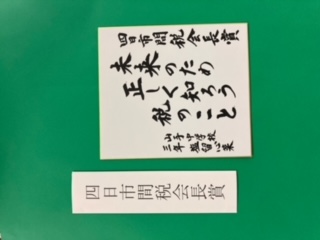 四日市間税会長賞
未来のため
正しく知ろう
税のこと
山手中学校
三年
四日市間税会長賞